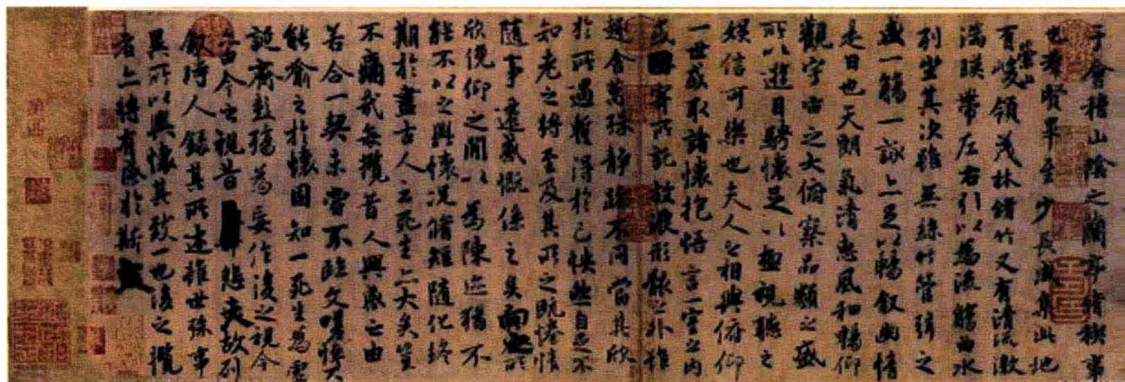 于會稽山陰之蘭亭脩稧事
也羣賢畢至少長咸集此地
有崇山峻領茂林脩竹又有清流激
湍暎帶左右引以為流觴曲水
列坐其次雖無絲竹管弦之
盛一觴一詠亦足以暢叙幽情
是日也天朗氣清惠風和暢仰
觀宇宙之大俯察品類之盛
所以遊目騁懷足以極視聽之
娛信可樂也夫人之相與俯仰
一世或取諸懷抱悟言一室之內
或因寄所託放浪形骸之外雖
趣舍萬殊靜躁不同當其欣
於所遇暫得於己怏然自足不
知老之將至及其所之既惓情
隨事遷感慨係之矣向之所
欣俛仰之閒以為陳迹猶不
能不以之興懷況脩短隨化終
期於盡古人云死生亦大矣豈
不痛哉每攬昔人興感之由
若合一契未嘗不臨文嗟悼不
能喻之於懷固知一死生為虛
誕齊彭殤為妄作後之視今
亦由今之視昔悲夫故列
叙時人錄其所述雖世殊事
異所以興懷其致一也後之攬
者亦將有感於斯文